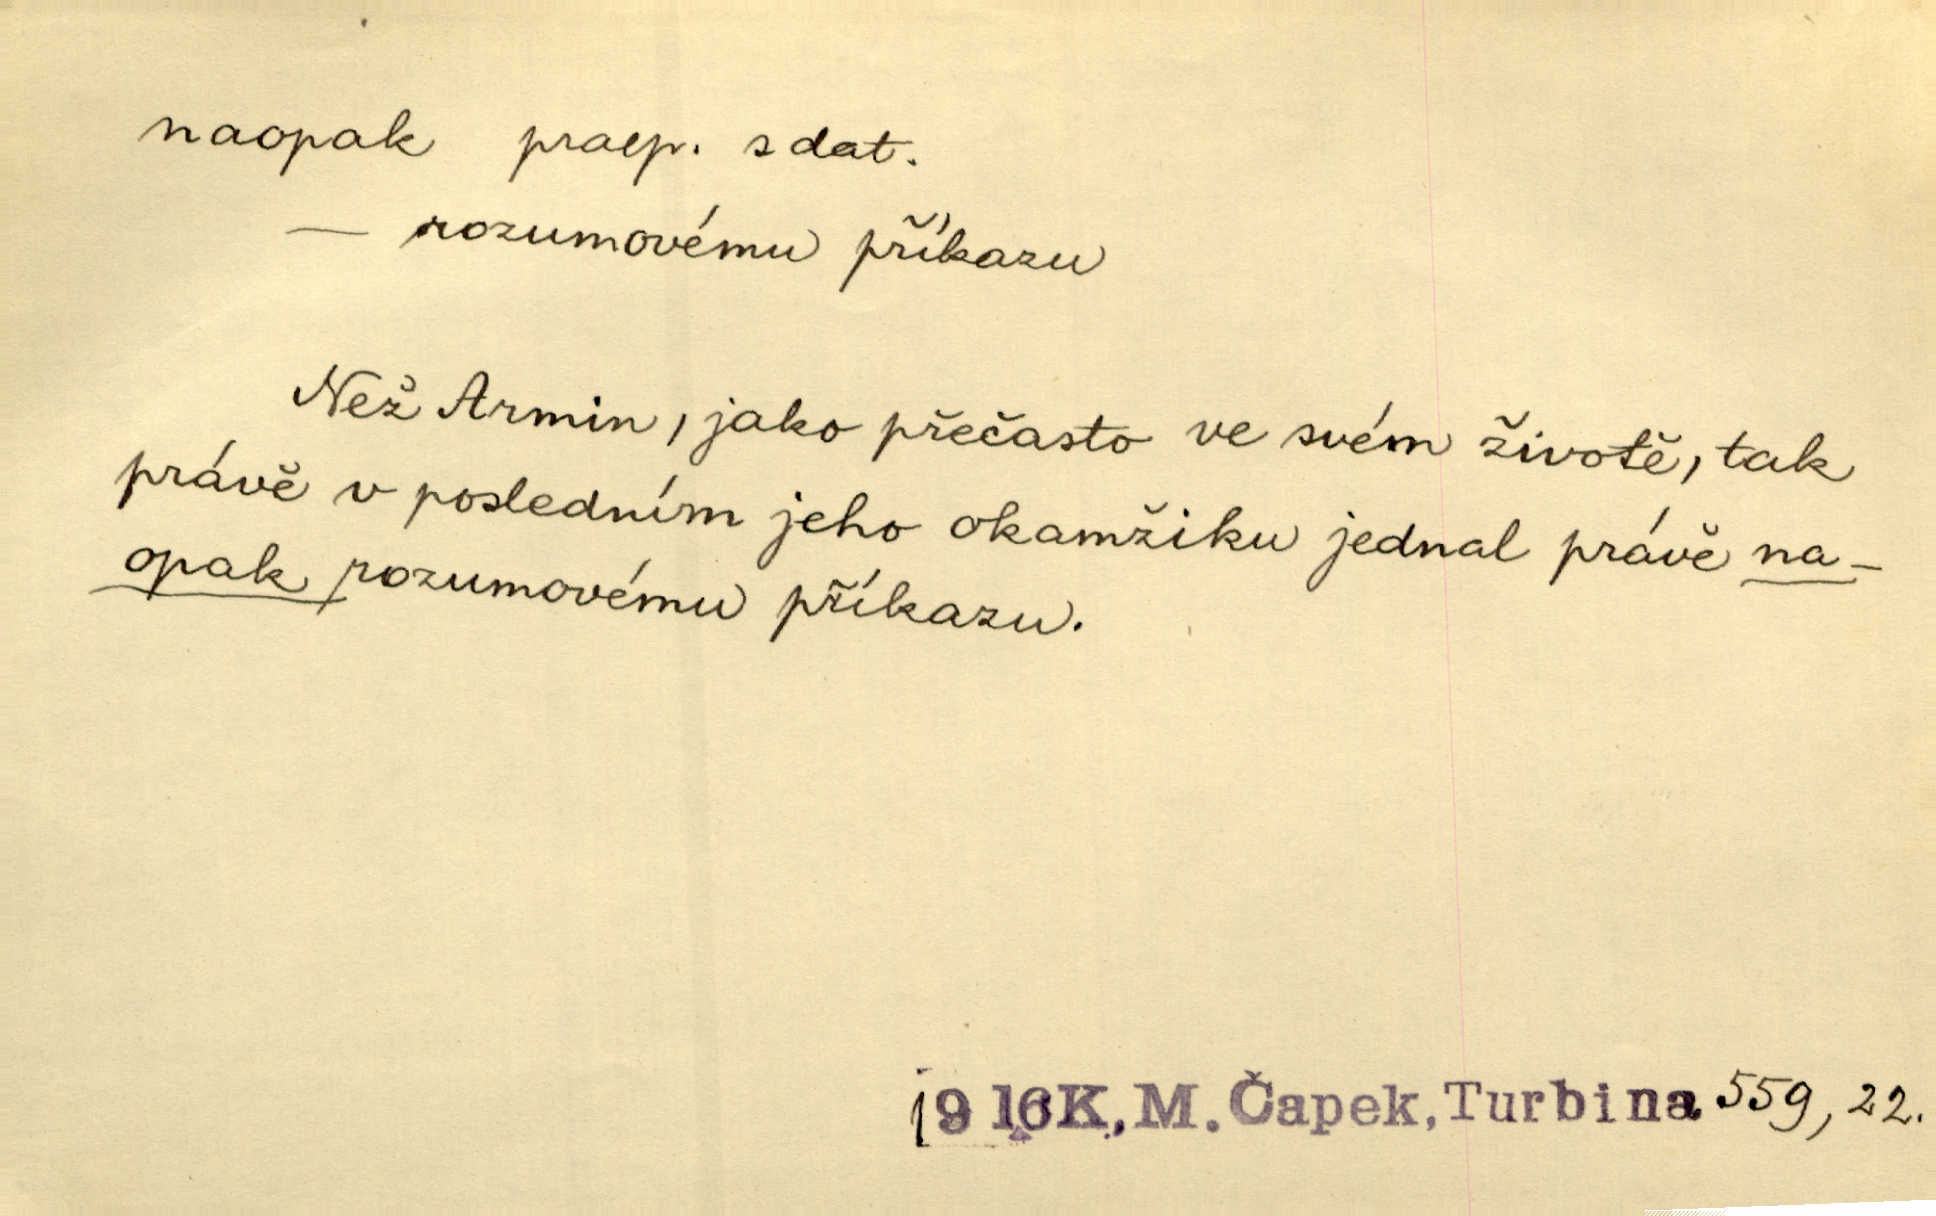 naopak praep. s dat.
— rozumovému příkazu
Než Armin, jako přečasto ve svém životě, tak
právě v posledním jeho okamžiku jednal právě na-
opak rozumovému příkazu.
1916K, M. Čapek, Turbina 559, 22.